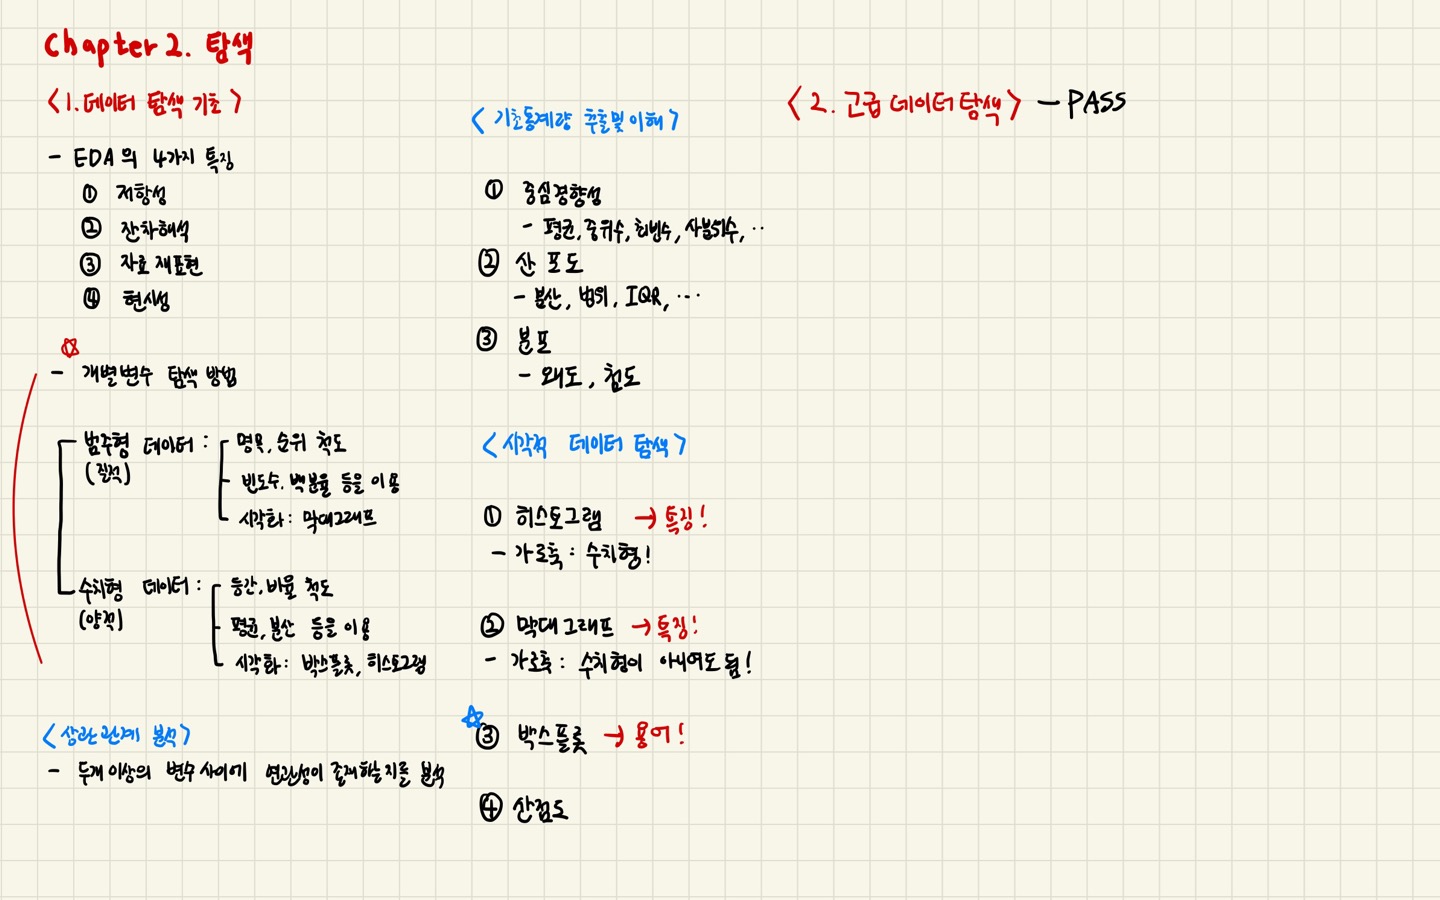 Chapter 2. 탐색
<1. 데이터 탐색 기초>
- EDA의 4가지 특징
① 저항성
② 잔차해석
③ 자료 재표현
④ 현시성
☆
- 개별변수 탐색 방법
범주형 데이터 : 명목, 순위 척도
(질적)
빈도수, 백분율 등을 이용
시각화 : 막대그래프
수치형 데이터 : 등간, 비율 척도
(양적)
평균, 분산 등을 이용
시각화 : 박스플롯, 히스토그램
<상관관계 분석>
- 두개 이상의 변수 사이에 연관성이 존재하는지를 분석
<기초통계량 추출및 이해>
① 중심경향성
- 평균, 중위수, 최빈수, 사분위수, ..
② 산포도
- 분산, 범위, IQR, ...
③ 분포
- 왜도, 첨도
<시각적 데이터 탐색>
① 히스토그램 → 특징!
- 가로축 : 수치형!
② 막대그래프 → 특징!
- 가로축 : 수치형이 아니어도 됨!
☆
③ 박스플롯 → 용어!
④ 산점도
<2. 고급 데이터 탐색> - PASS